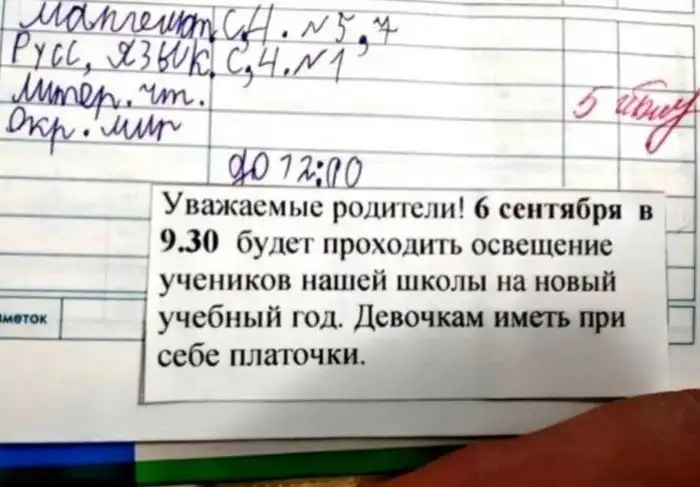 Математ. С,4. №5,7
Русс, язык. С,4.№1
Литер. чт.
Окр. мир
5
до 12:00
Уважаемые родители! 6 сентября в
9.30 будет проходить освещение
учеников нашей школы на новый
учебный год. Девочкам иметь при
себе платочки.
меток